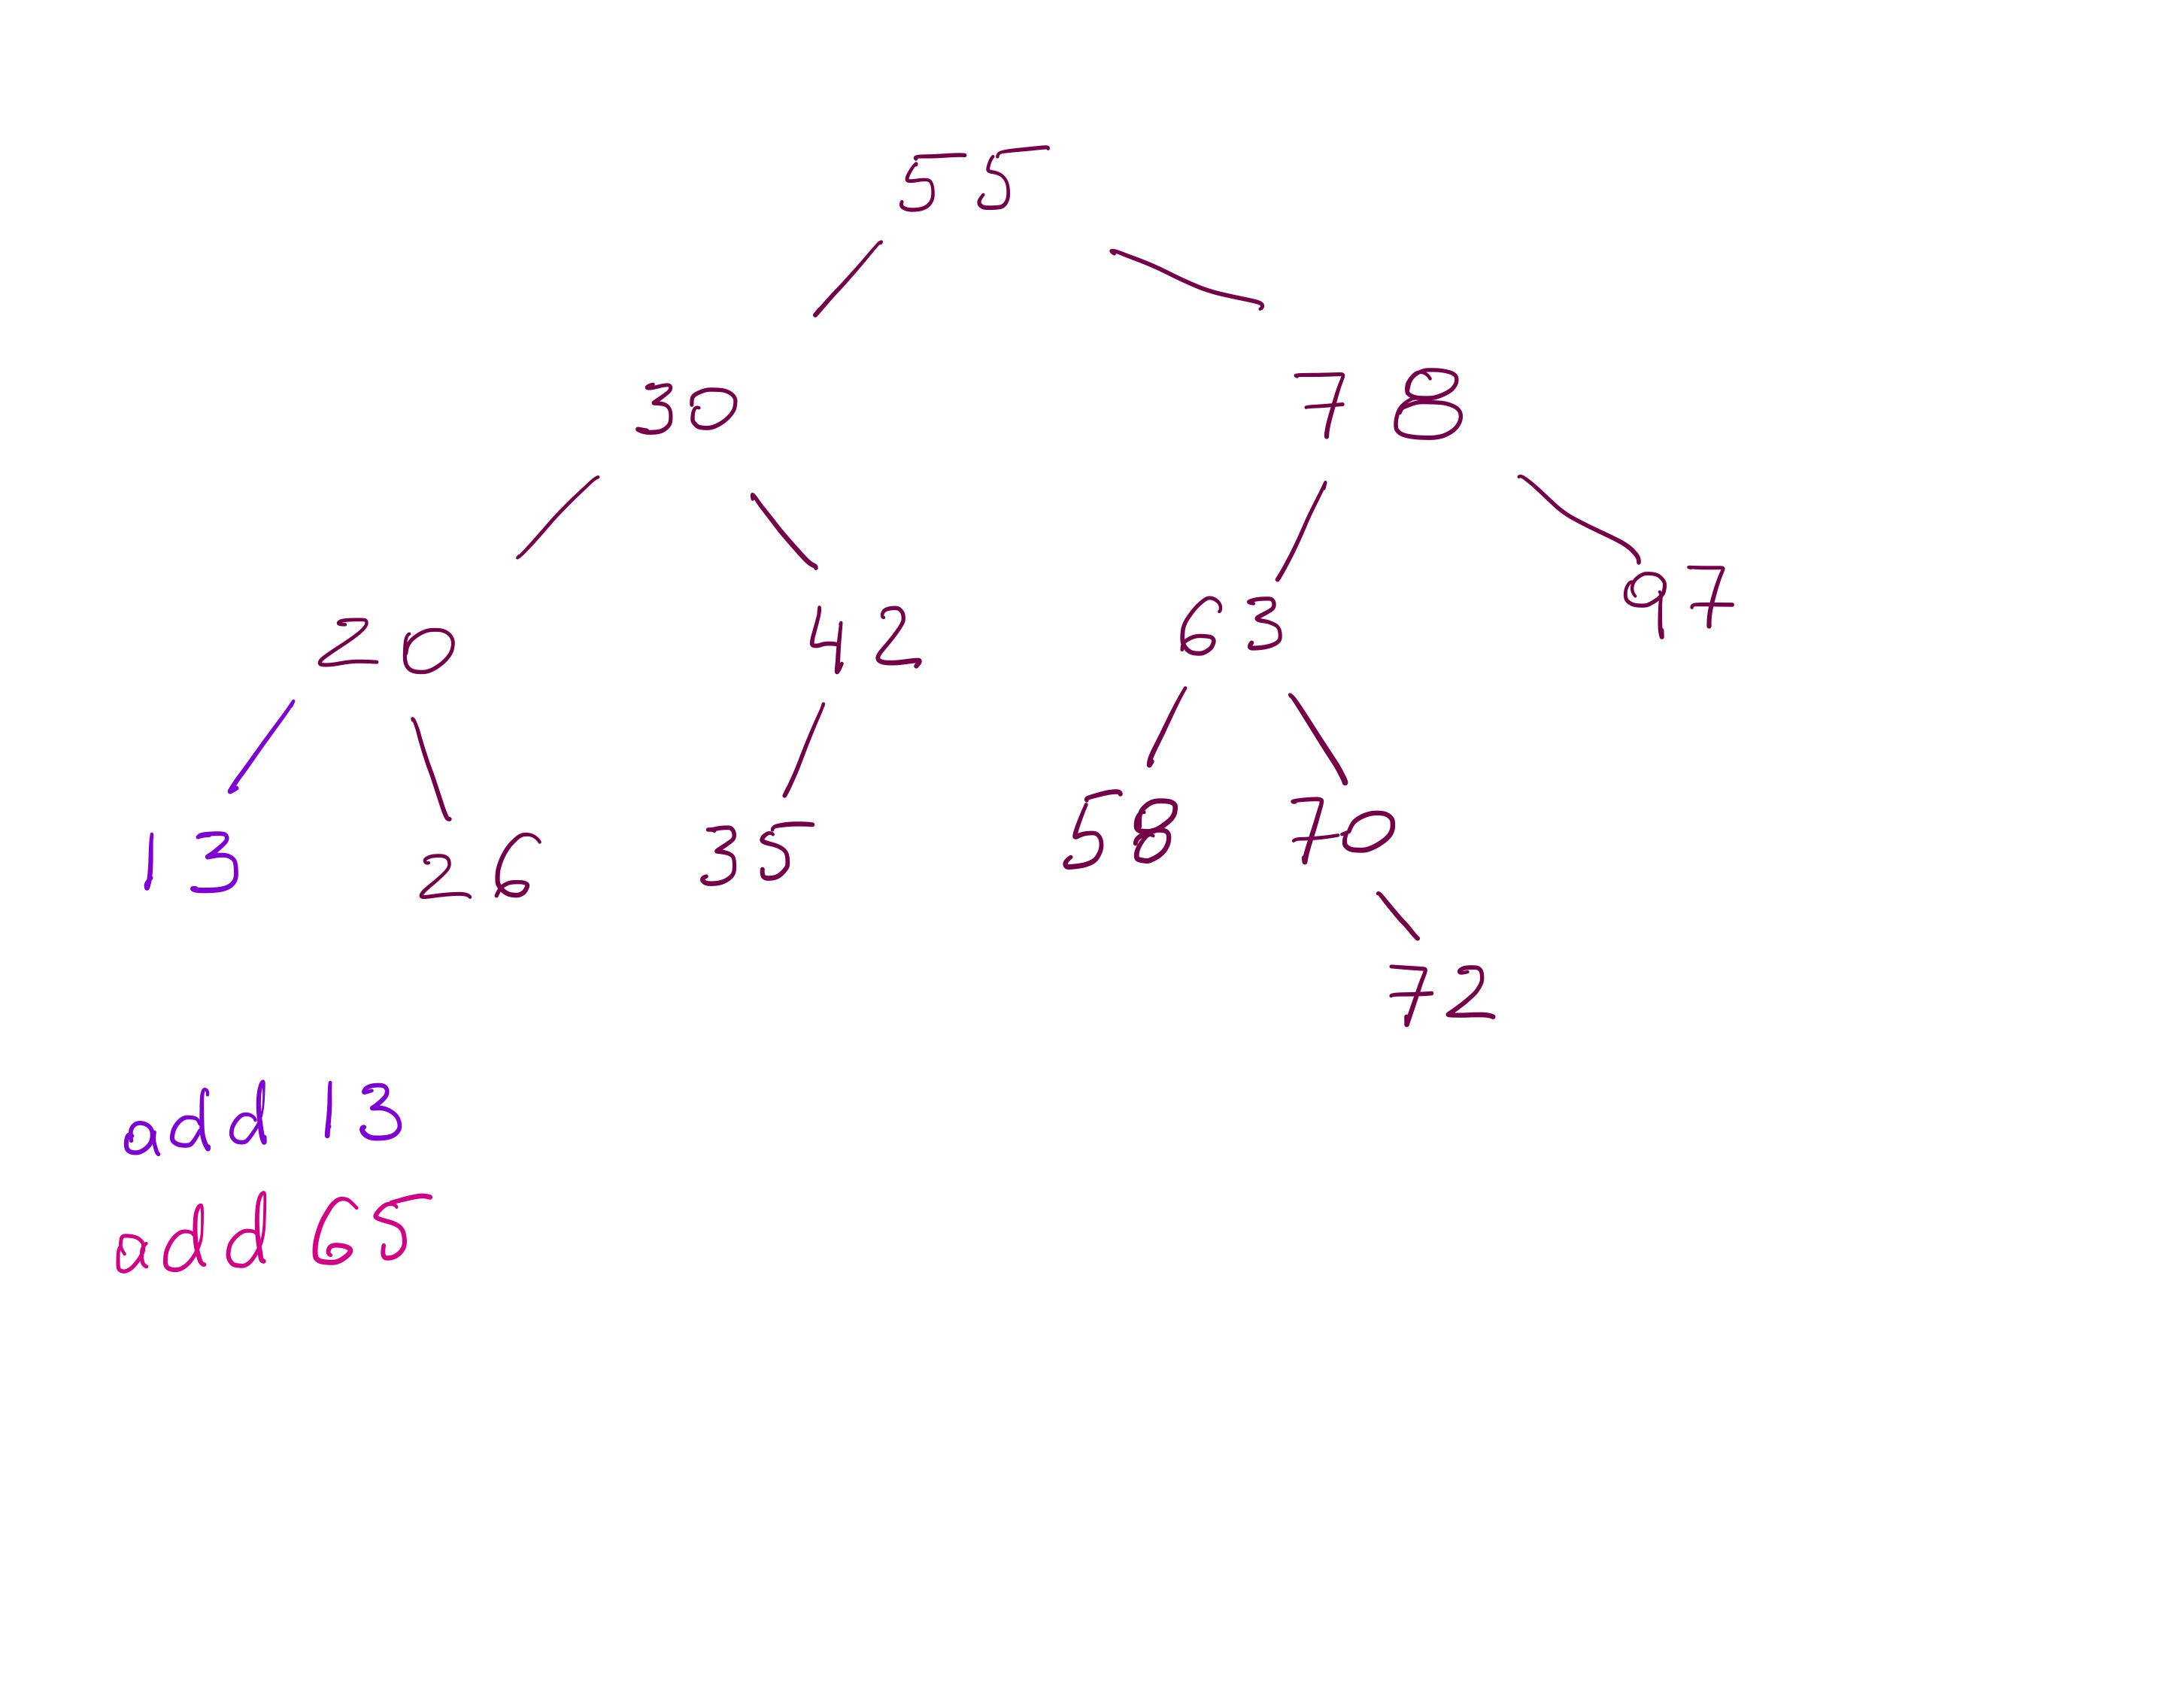 55
30 78
20 42 63 97
13 26 35 58 70
72
add 13
add 65